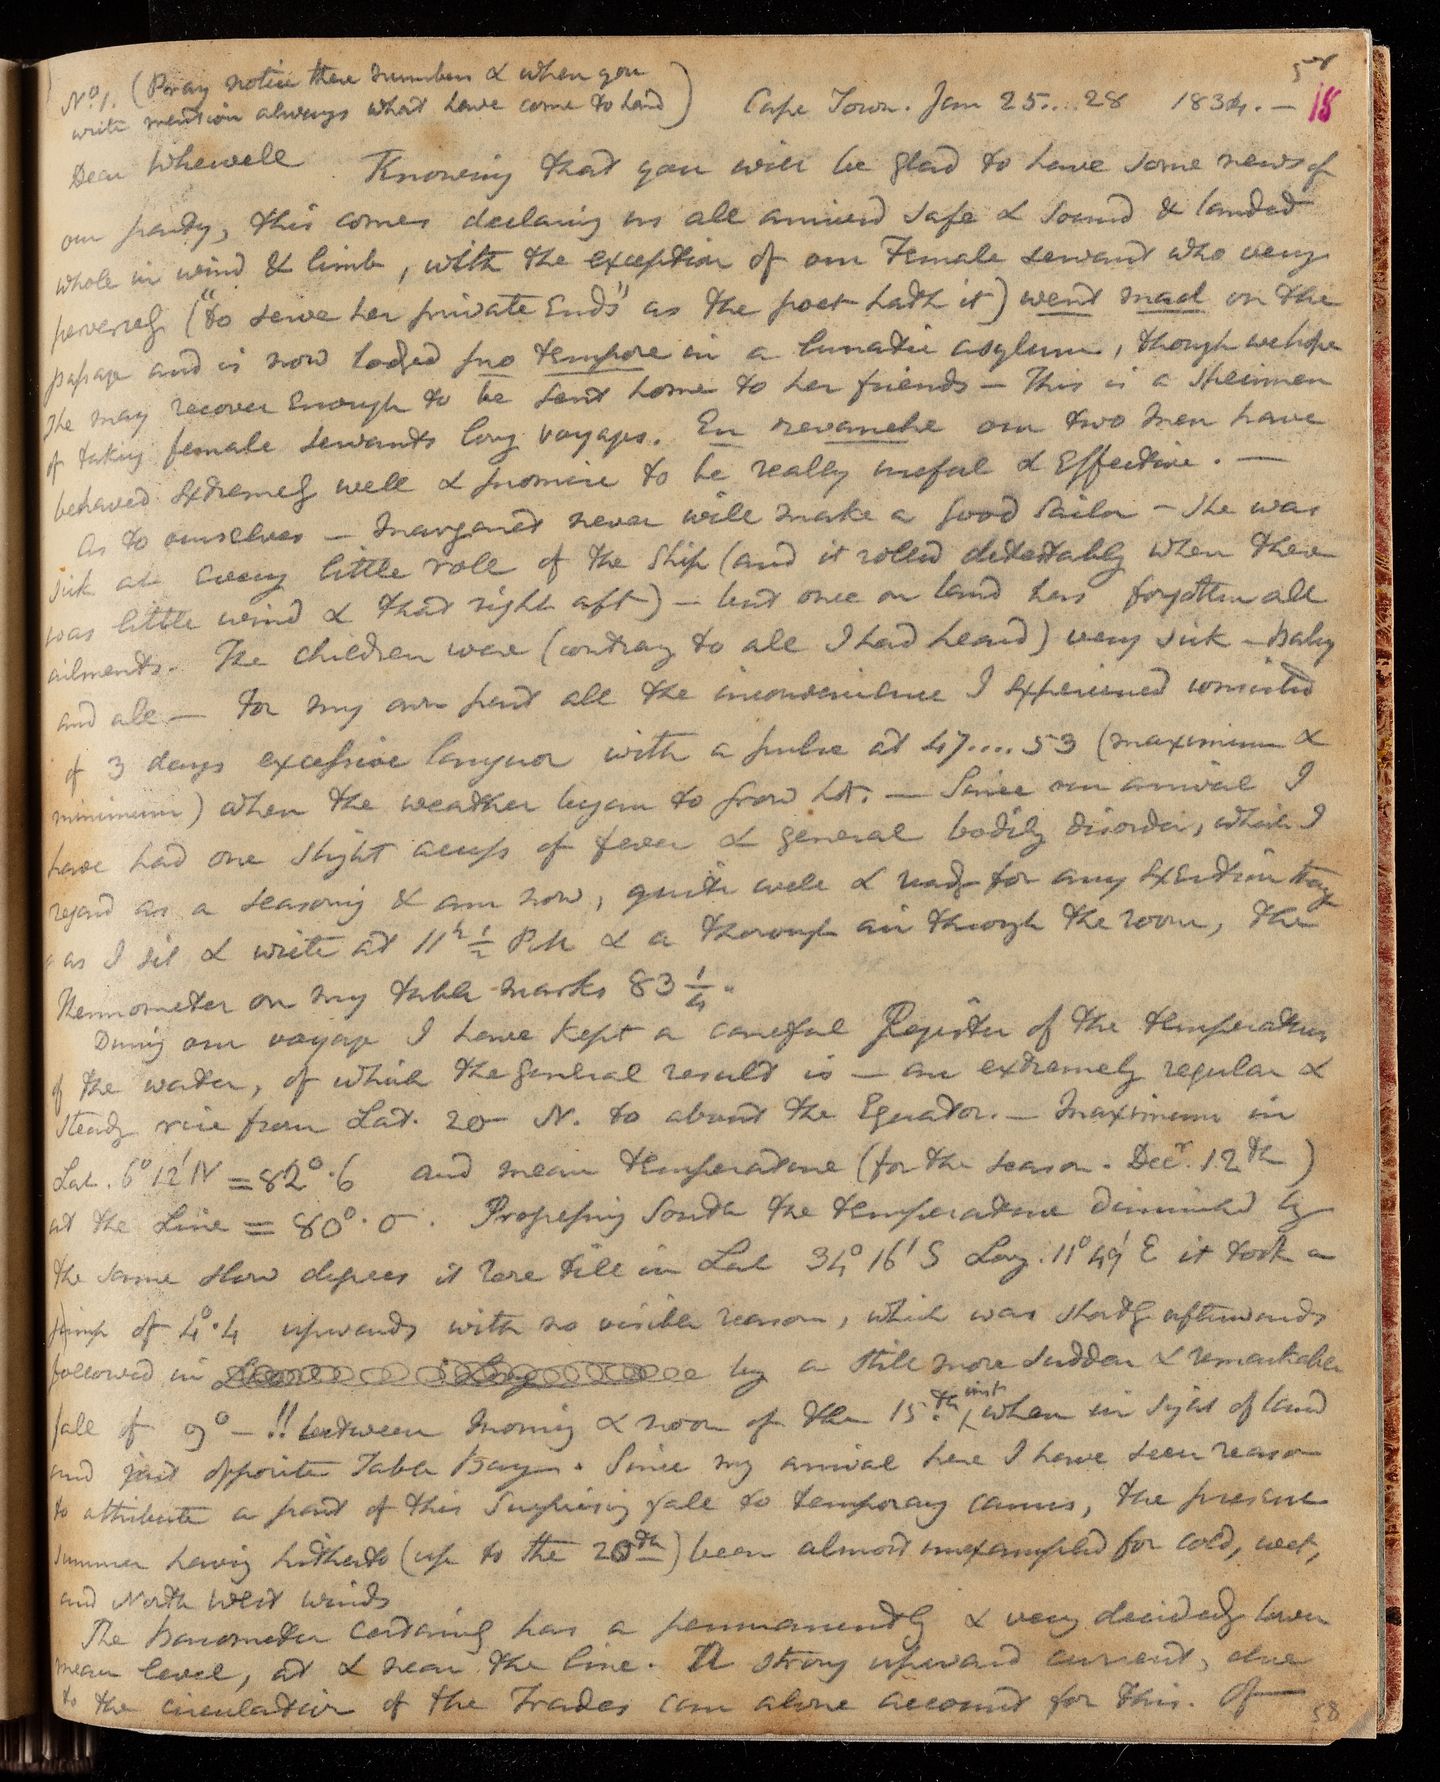 No. 1. (Pray notice these numbers & when you
write mention always what have come to hand)
Cape Town. Jan 25....28 1834. —
18
Dear Whewell Knowing that you will be glad to have some news of
our party, this comes declaring us all arrived safe & sound & landed
whole in wind & limb, with the exception of our Female servant who very
perversely ("to serve her private Ends" as the poet hath it) went mad on the
passage and is now lodged pro tempore in a lunatic asylum, though we hope
She may recover enough to be sent home to her friends — This is a specimen
of taking female servants long voyages. En revanche our two men have
behaved extremely well & promise to be really useful & Effective. —
As to ourselves — Margaret never will make a good Sailor — She was
Sick at every little roll of the Ship (and it rolled detestably when there
was little wind & that right aft) — but once on land has forgotten all
ailments. The children were (contrary to all I had heard) very sick — Baby
and all — For my own part all the inconvenience I experienced consisted
of 3 days excessive languor with a pulse at 47....53 (maximum &
minimum) when the weather began to grow hot. — Since our arrival I
have had one slight access of fever & general bodily disorder, which I
regard as a seasoning & am now, quite well & ready for any Exertion tho'
as I sit & write at 11h ½ PM & a thorough air through the room, the
Thermometer on my table marks 83 ¼.
During our voyage I have kept a careful Register of the temperature
of the water, of which the general result is — an extremely regular &
steady rise from Lat. 20 N. to about the Equator. — Maximum in
Lat. 6° 12' N = 82°.6 and mean temperature (for the season. Decr. 12th)
at the Line = 80°.0. Progressing South the temperature diminished by
the same slow degrees it rose till in Lat 34° 16' S Long. 11° 49' E it took a
jump of 4°.4 upwards with no visible reason, which was shortly afterwards
followed in by a still more sudden & remarkable
fall of 9° — !! between morning & noon of the 15th inst when in sight of land
and just opposite Table Bay. Since my arrival here I have seen reason
to attribute a part of this surprising fall to temporary causes, the present
summer having hitherto (up to the 20th) been almost unexampled for cold, wet,
and North West winds
The Barometer certainly has a permanently & very decidedly lower
mean level, at & near the line. A strong upward current, due
to the circulation of the Trades can alone account for this. Of
58